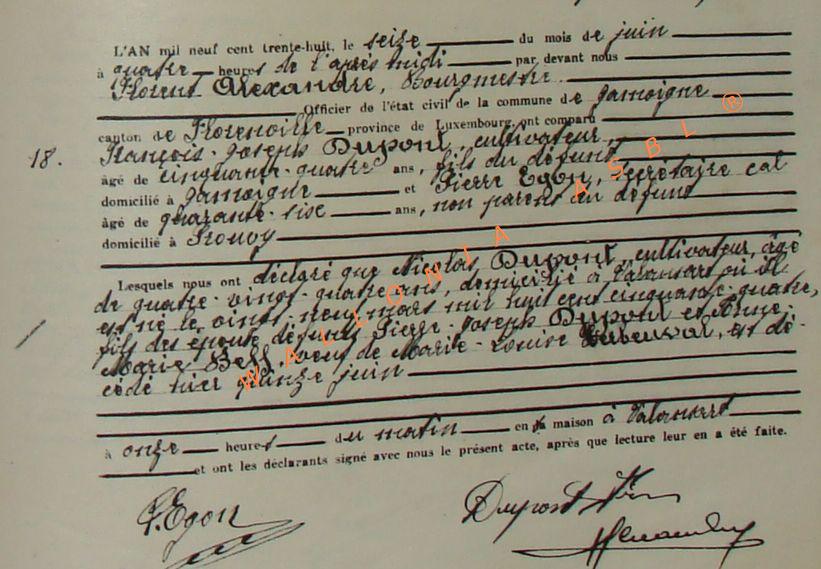 L'AN mil neuf cent trente-huit, le seize du mois de juin
à quatre heures de l'après midi par devant nous
Florent Alexandre, Bourgmestre
Officier de l'état civil de la commune de Jamoigne
canton de Florenville province de Luxembourg, ont comparu
18. François-Joseph Dupont, cultivateur
âgé de cinquante-quatre ans, fils du défunt
domicilié à Jamoigne et Pierre Egon, secrétaire cal
âgé de quarante-sise ans, non parent au défunt
domicilié à
Lesquels nous ont déclaré que Nicolas Dupont, cultivateur, âgé
de quatre-vingt-quatre ans, domicilié à Valansart où il
est né le vingt-neuf mars mil huit cent cinquante-quatre,
fils des époux défunts Pierre-Joseph Dupont et Anne-
Marie veuf de Marie-Louise est dé-
cédé hier quinze juin
à onze heures du matin en sa maison à Valansart
et ont les déclarants signé avec nous le présent acte, après que lecture leur en a été faite.
P. Egon
Dupont
WALLONIA ASBL ®